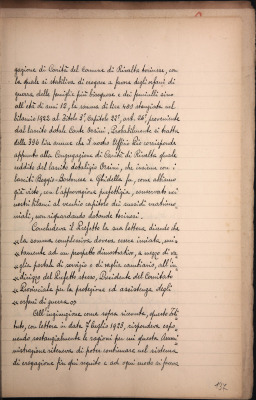 gazione di Carità del Comune di Rivalta torinese, con
la quale si stabiliva di erogare a favore degli orfani di
guerra delle famiglie più bisognose e dei fanciulli sino
all'età di anni 12, la somma di lire 403 stanziata nel
bilancio 1922 al Titolo 3°, Capitolo 22°, art. 26° proveniente
dal lascito dotale Conte Orsini. Probabilmente si tratta
delle 396 lire annue che il nostro Ufficio Pio corrisponde
appunto alla Congregazione di Carità di Rivalta quale
reddito del lascito dotalizio Orsini, che insieme con i
lasciti Boggio-Bertinese e Ghidella fu, come abbiamo
già visto, con l'approvazione prefettizia, conservato nei
nostri bilanci al vecchio capitolo dei sussidi matrimo,
niali, non riguardando dotande torinesi.
Concludeva il Prefetto la sua lettera dicendo che
"la somma complessiva doveva essere inviata, uni,
"tamente ad un prospetto dimostrativo, a mezzo di va,
"glia postale di servizio o di vaglia cambiario, all'in,
"dirizzo del Prefetto stesso, Presidente del Comitato
"Provinciale per la protezione ed assistenza degli
"orfani di guerra."
All'ingiunzione come sopra ricevuta, questo Isti,
tuto, con lettera in data 7 luglio 1923, rispondeva espo,
nendo dettagliatamente le ragioni per cui questa Ammi
nistrazione riteneva di poter continuare nel sistema
di erogazione fin qui seguito e ad ogni modo si faceva
137